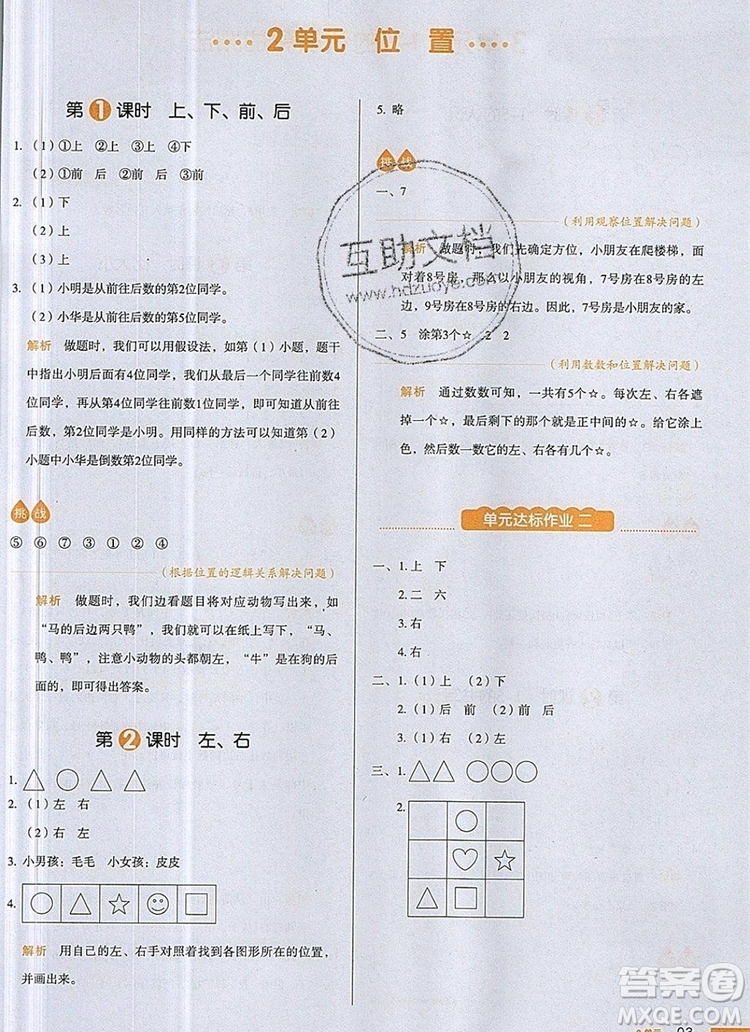 2单元 位 置
第1课时 上、下、前、后
1. (1)①上 ②上 ③上 ④下
(2)①前 后 ②后 前
2. (1)下
(2)上
(3)上
3. (1)小明是从前往后数的第2位同学。
(2)小华是从前往后数的第5位同学。
解析 做题时，我们可以用假设法，如第(1)小题，题干
中指出小明后面有4位同学，我们从后往前数4
位同学，再从第4位同学往前数1位同学，即可知道从前往
后数，第2位同学是小明。用同样的方法可以知道第(2)
小题中小华是倒数第2位同学。
挑战
⑤ ⑥ ⑦ ③ ① ② ④
(根据位置的逻辑关系解决问题)
解析 做题时，我们边看题目将对应动物写出来，如
“马的后边两只鸭”，我们就可以在纸上写下，“马、
鸭、鸭”，注意小动物的头都朝左，“牛”在狗的后
面的后面，即可得出答案。
第2课时 左、右
1. △ ○ △ △
2. (1)左 右
(2)右 左
3. 小男孩：毛毛 小女孩：皮皮
4.
解析 用自己的左、右手对照着找到各图形所在的位置，
并画出来。
5. 略
挑战
一、7
(利用观察位置解决问题)
解析 做题时，我们先确定方位，小朋友在爬楼梯，面
对着8号房，那么以小朋友的视角，7号房在8号房的左
边，9号房在8号房的右边。因此，7号房是小朋友的家。
二、5 涂第3个☆ 2 2
(利用数数和位置解决问题)
解析 通过数数可知，一共有5个☆。每次左、右各遮
掉一个☆，最后剩下的那个就是正中间的。给它涂上
色，然后数一数它的左、右各有几个☆。
单元达标作业 二
一、1. 上 下
2. 二 六
3. 右
4. 右
二、1. (1)上 (2)下
2. (1)后 前 (2)前 后
3. (1)右 (2)左 左
三、1. △△ ○○○
2.
互助文档
www.hdzuoye.com
03
答案圈
MXQE.COM